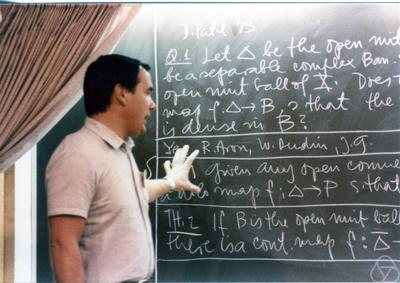 J. Patil '73
Q.1 Let Δ be the open unit
be a separable complex Ban.
open unit ball of X. Does t
map f: Δ→B, s that the
is dense in B?
R. Aron, W. Rudin, J.G.
given any open conne
map f: Δ→P s.that
TH.2 If B is the open unit ball
there is a cont. map f: Δ̄→